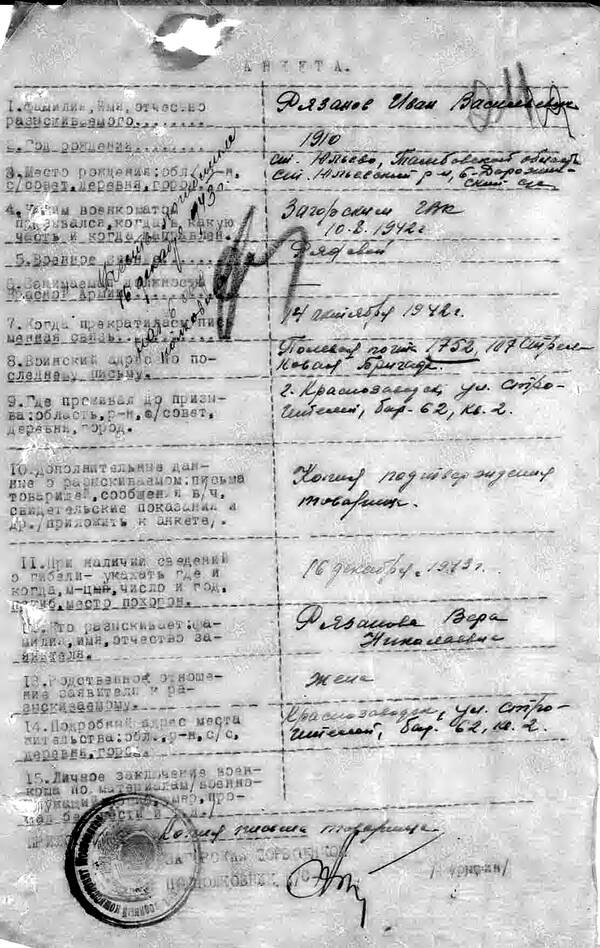 АНКЕТА.
1.Фамилия, Имя, отчество разыскиваемого
Рязанов Иван Васильевич
2.Год рождения
1910
3.Место рождения: обл., р-н, с/совет, деревня, город.
ст. Юльево, Тамбовской область
ст. Юльевский р-н, б-Дорожин-
ский с/с
4. Каким военкоматом
призывался, когда, в какую
часть и когда направлен.
Загорским ГВК
10.2.1942г
5.Военное
Рядовой
6.Занимаемая должность
Красной Армии
—
7.Когда прекратилась пись-
менная связь
14 октября 1942г.
8.Воинский адрес по по-
следнему письму.
Полевая почта 1752, 107 Стрел-
ковая Бригада.
9.Где проживал до призы-
ва:область,р-н,с/совет,
деревня,город.
г. Краснозаводск, ул. Стро-
ителей, бар. 62, кв. 2.
10.Дополнительные дан-
ные о разыскиваемом:письма
товарищей,сообщения в/ч,
свидетельские показания и
др./приложить к анкете/.
Копия подтверждения
товарища.
11.При наличии сведений
о гибели- указать где и
когда,м-цый,число и год,
погиб,место похорон.
16 декабря 1943г.
12.Кто разыскивает:фа-
милия,имя,отчество за-
явителя.
Рязанова Вера
Николаевна
13.Родственное отноше-
ние заявителя к ра-
зыскиваемому.
жена
14.Подробный адрес места
жительства:обл.,р-н,с/с,
деревня,город.
Краснозаводск, ул. Стро-
ителей, бар. 62, кв. 2.
15.Личное заключение воен-
кома по материалам/военно-
служащий погиб, умер, про-
пал без вести и т.д./
Копия письма товарища
ЗАГОРСКИЙ ГОРВОЕНКОМ
ПОДПОЛКОВНИК